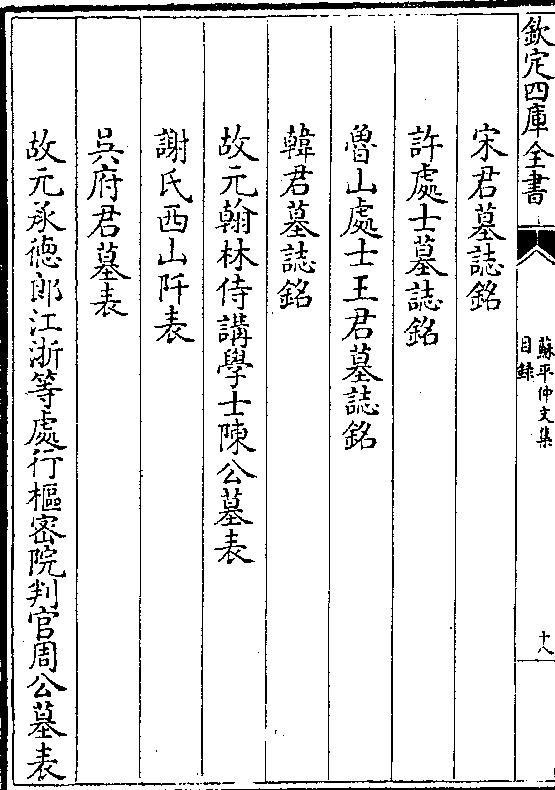 欽定四庫全書
蘇平仲文集
目録
十八
宋君墓誌銘
許處士墓誌銘
魯山處士王君墓誌銘
韓君墓誌銘
故元翰林侍講學士陳公墓表
謝氏西山阡表
吳府君墓表
故元承德郎江浙等處行樞密院判官周公墓表